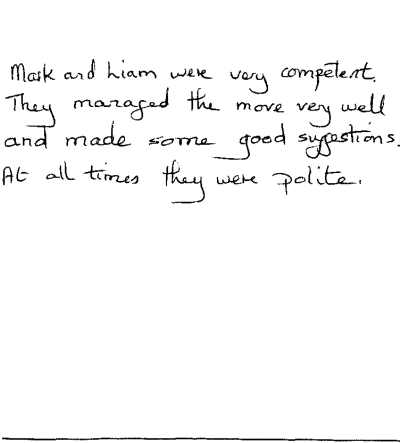 Mark and Liam were very competent.
They managed the move very well
and made some good sugestions.
At all times they were polite.